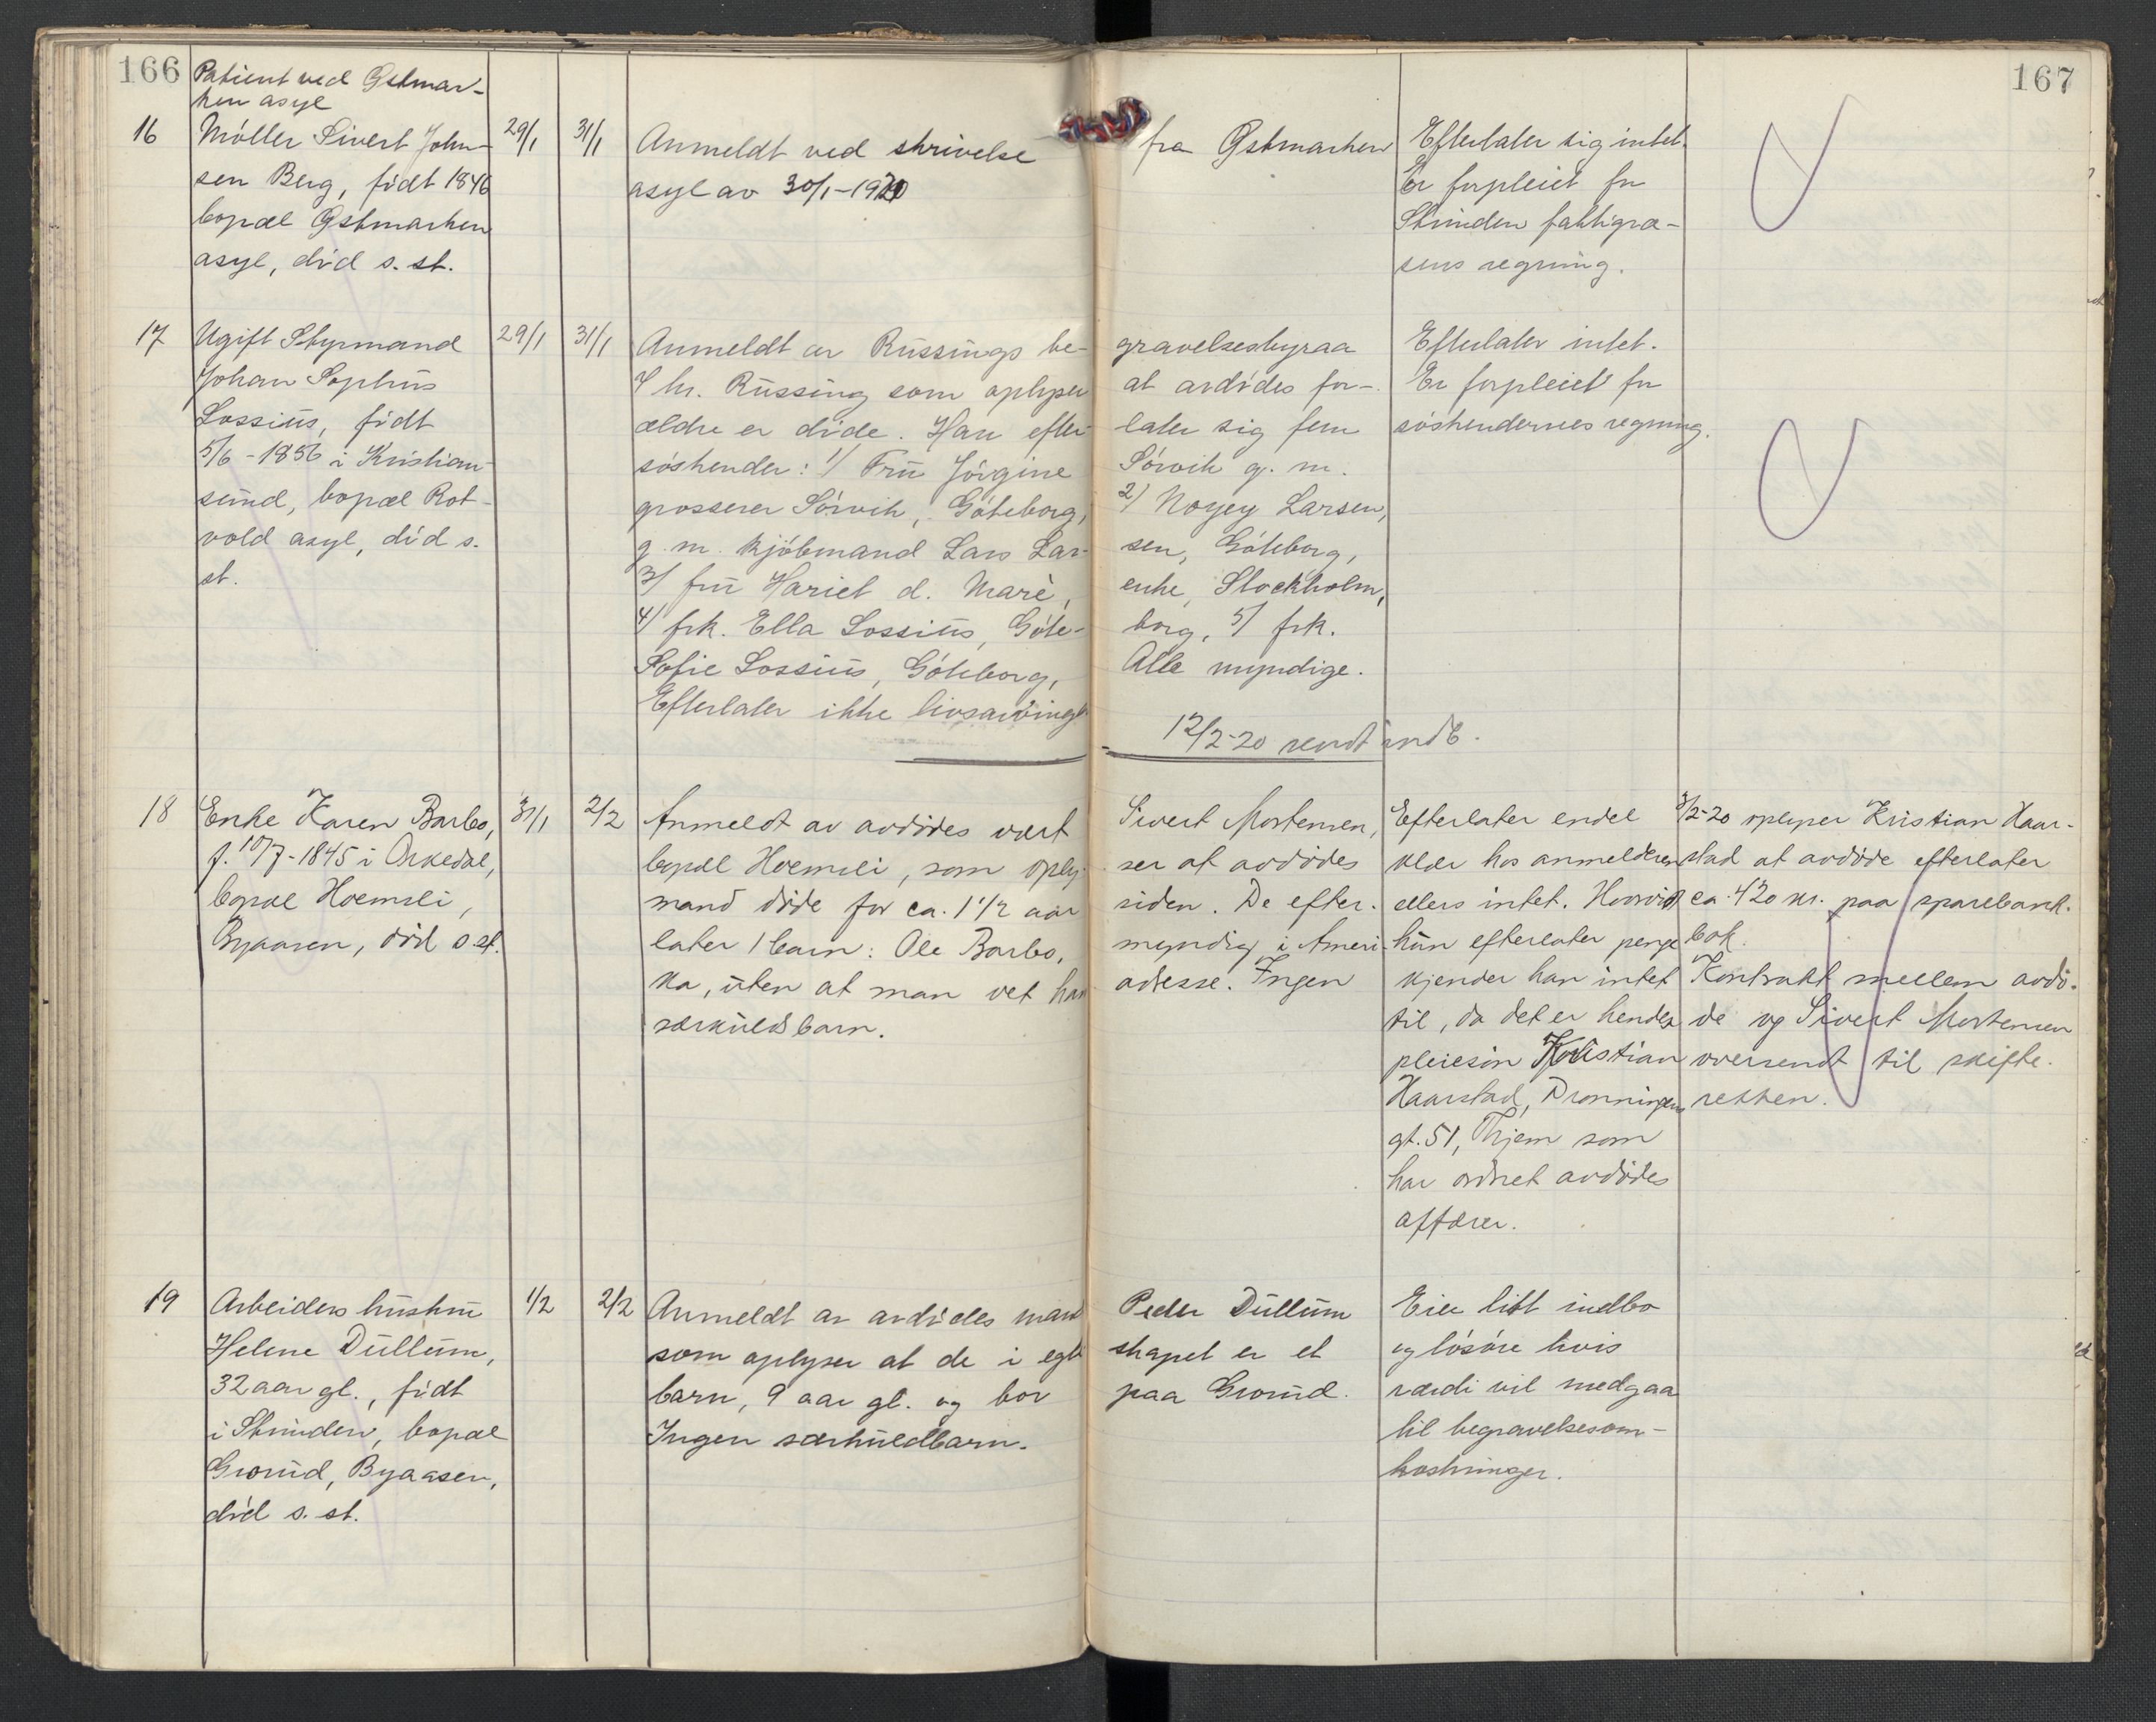 166
167
Patient ved Østmar-
ken asyl
16
Møller Sivert John-
sen Berg, född 1846
bopæl Østmarken
asyl, död s. st.
29/1
31/1
Anmeldt ved skrivelse
fra Østmarken
asyl av 30/1-1920
Efterlater sig intet.
Er forpleiet for
Strinden fattigvæ-
sens regning.
17
Ugift Styrmand
Johan Sophus
Lossius, födt
5/6-1856 i Kristian-
sund, bopæl Rot-
vold asyl, död s.
st.
29/1
31/1
Anmeldt av Russings be-
gravelsesbyraa
v/ hr. Russing som oplyser
at avdödes for-
ældre er döde. Han efter-
later sig fem
söskender: 1/ Fru Jörgine
Sörvik g. m.
grosserer Sörvik, Göteborg,
2/ Noyey Larsen,
g. m. kjöbmand Lars Lar-
sen, Göteborg,
3/ fru Hariet d. Maré,
enke, Stockholm,
4/ frk. Ella Lossius, Göte-
borg, 5/ frk.
Sofie Lossius, Göteborg,
Alle myndige.
Efterlater ikke livsarving
Efterlater intet.
Er forpleiet for
söskendernes regning.
12/2-20 sendt indb.
18
Enke Karen Barbo,
f. 10/7-1845 i Orkedal,
bopæl Hoemsli,
Byaasen, död s. st.
31/1
2/2
Anmeldt av avdödes vært
Sivert Mortensen,
bopæl Hoemsli, som oply-
ser at avdödes
mand döde for ca. 1 1/2 aar
siden. De efter-
later 1 barn: Ole Barbo,
myndig i Ameri-
ka, uten at man vet han
adresse. Ingen
særkuldsbarn.
Efterlater endel
klær hos anmelderen
ellers intet. Hvorvidt
hun efterlater penge
kjender han intet
til, da det er hendes
pleiesön Kristian
Haarstad, Dronningens
gt. 51, Thjem som
har ordnet avdödes
affærer.
3/2-20 oplyser Kristian Haar-
stad at avdöde efterlater
ca. 420 kr. paa sparebank-
bok.
Kontrakt mellem avdö-
de og Sivert Mortensen
oversendt til skifte-
retten.
19
Arbeiders hustru
Helene Dullum,
32 aar gl., födt
i Strinden, bopæl
Gronud, Byaasen,
död s. st.
1/2
2/2
Anmeldt av avdödes mand
Peder Dullum
som oplyser at de i egte
skapet er et
barn, 9 aar gl. og bor
paa Gronud.
Ingen særkuldbarn.
Eier litt indbo
og lösöre hvis
værdi vil medgaa
til begravelsesom-
kostninger.